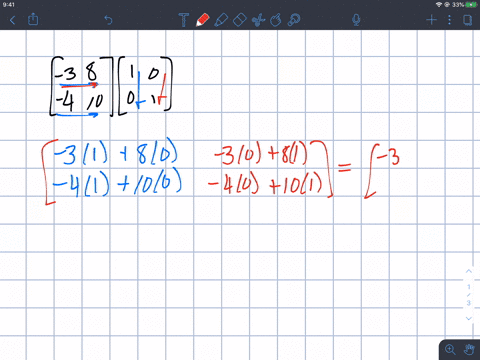 9:41
33%
[-3 8] [1 0]
[-4 10] [0 1]
[-3(1) + 8(0) -3(0) + 8(1)] = [-3
[-4(1) + 10(0) -4(0) + 10(1)]
1
/
3